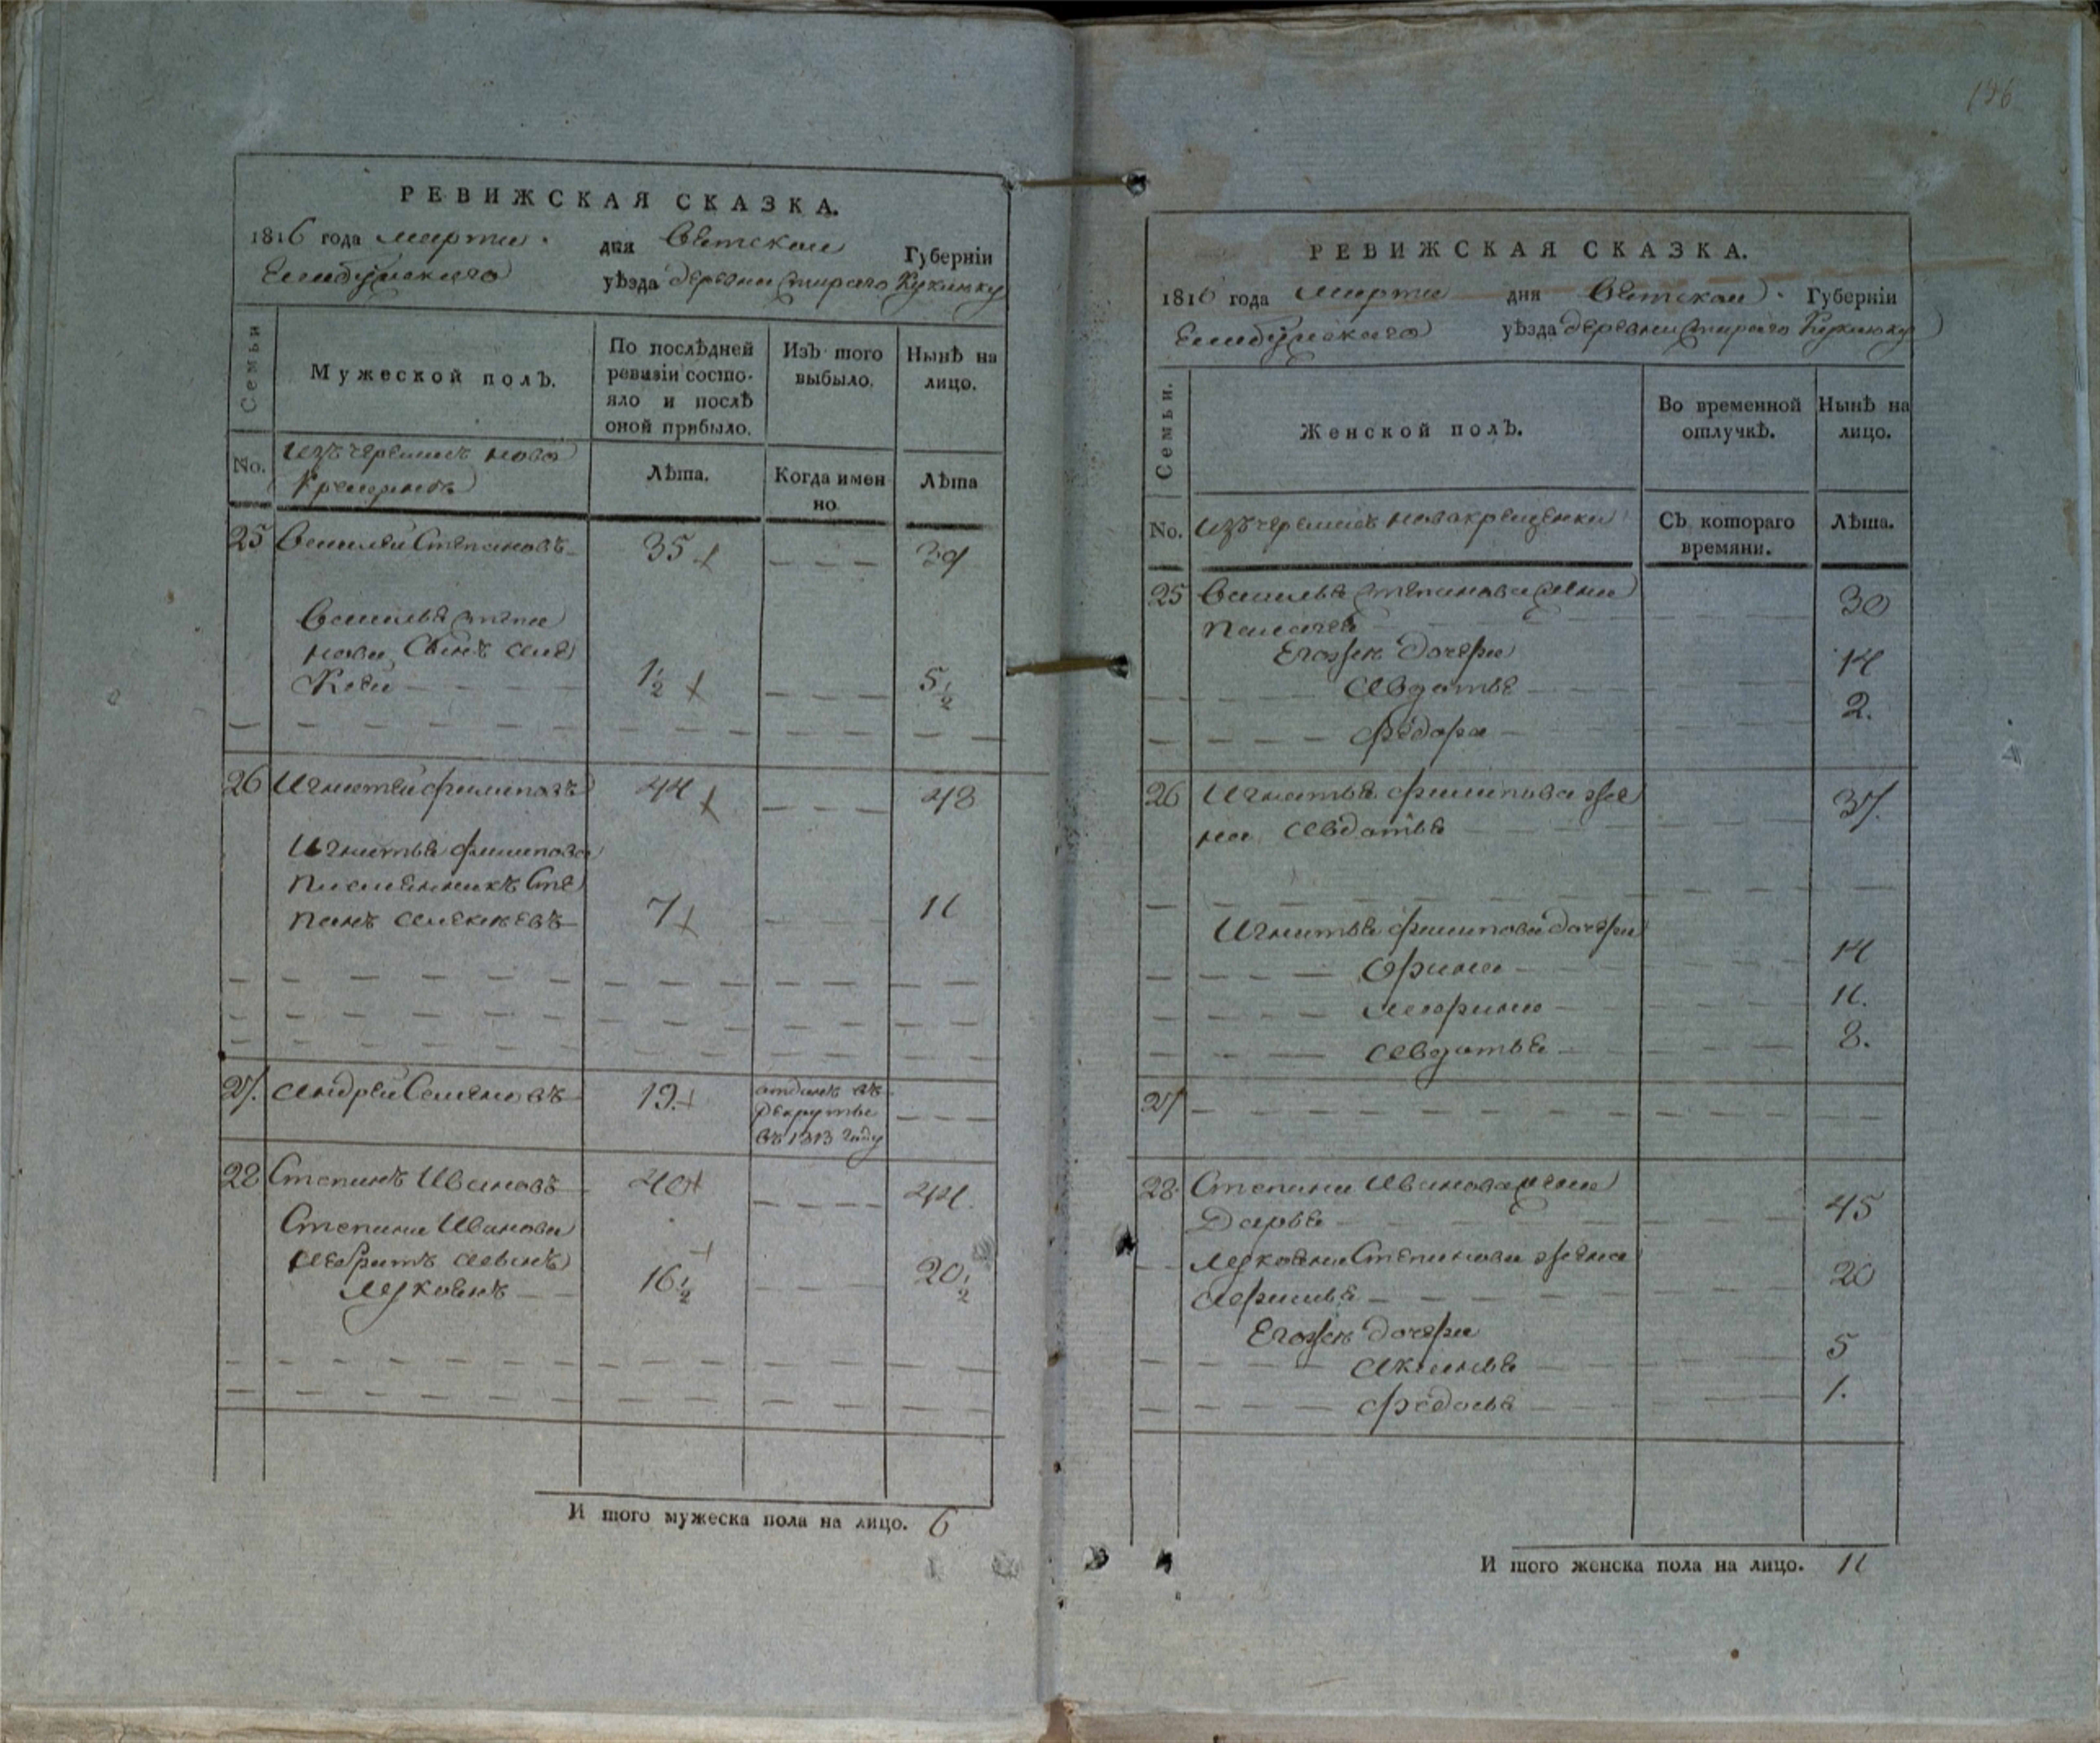 РЕВИЖСКАЯ СКАЗКА.
1816 года марта дня Вятской Губерніи
Елабужскаго уѣзда деревни Стараго Кукмоку
Семьи
Мужеской полЪ.
По послѣдней ревизіи состояло и послѣ оной прибыло.
ИзЪ того выбыло.
Нынѣ на лицо.
No.
изъ черемисъ ново
крещенъ
Лѣта.
Когда имен
но
Лѣта
25 Василей Степановъ 35 — — — 39
Василья Степа
нова Сынъ Але
ксей 1 1/2 — — — 5 1/2
26 Игнатей Филиповъ 44 — — — 48
Игнатья Филипова
племянникъ Сте
панъ Алексеевъ 7 — — — 11
27. Андрей Семеновъ 19. отданъ въ
рекруты
въ 1813 году — — —
28 Степанъ Ивановъ 40 — — — 44.
Степана Иванова
16 1/2 — — 20 1/2
И того мужеска пола на лицо. 6
РЕВИЖСКАЯ СКАЗКА.
1816 года марта дня Вятской Губерніи
Елабужскаго уѣзда деревни Стараго Кукмоку
Семьи.
Женской полЪ.
Во временной отлучкѣ.
Нынѣ на лицо.
No.
изъ черемисъ новокрещенки
СЪ котораго времяни.
Лѣта.
25 Василья Степанова жена
30
Егожъ дочери
Авдотья 14
Федора 2.
26 Игнатья Филипова же
на Авдотья 37.
Игнатья Филипова дочери
Орина 14
11.
Авдотья 8.
27
28 Степана Иванова жена
Дарья 45
Степанова жена
20
Егожъ дочери
5
Федосья 1.
И того женска пола на лицо. 11